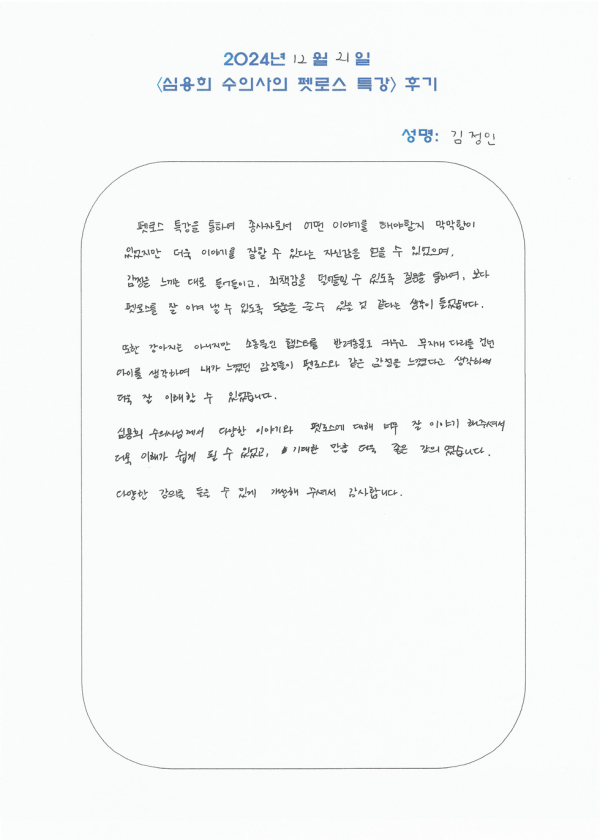 2024년 12월 21일
<심용희 수의사의 펫로스 특강> 후기
성명: 김정인
펫로스 특강을 통하여 종사자로서 어떤 이야기를 해야할지 막막함이
있었지만 더욱 이야기를 잘할 수 있다는 자신감을 얻을 수 있었으며,
감정을 느끼는 대로 받아들이고, 죄책감을 덜어들일 수 있도록 질문을 통하여, 보다
펫로스를 잘 이겨 낼 수 있도록 도움을 줄 수 있을 것 같다는 생각이 들었습니다.
또한 강아지는 아니지만 소동물인 햄스터를 반려동물로 키우고 무지개 다리를 건넌
아이를 생각하며 내가 느꼈던 감정들이 펫로스와 같은 감정을 느꼈다고 생각하며
더욱 잘 이해할 수 있었습니다.
심용희 수의사님께서 다양한 이야기와 펫로스에 대해 너무 잘 이야기 해주셔서
더욱 이해가 쉽게 될 수 있었고, 기대한 만큼 더욱 좋은 강의 였습니다.
다양한 강의를 들을 수 있게 개설해 주셔서 감사합니다.